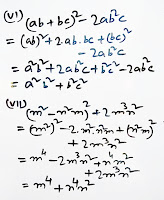 (VI) (ab+bc)² - 2ab²c
= (ab)² + 2ab.bc + (bc)²
- 2ab²c
= a²b² + 2ab²c + b²c² - 2ab²c
= a²b² + b²c²
(VII)
(m² - n²m)² + 2m³n²
= (m²)² - 2.m².n²m + (n²m)²
+ 2m³n²
= m⁴ - 2m³n² + n⁴m²
+ 2m³n²
= m⁴ + n⁴m²